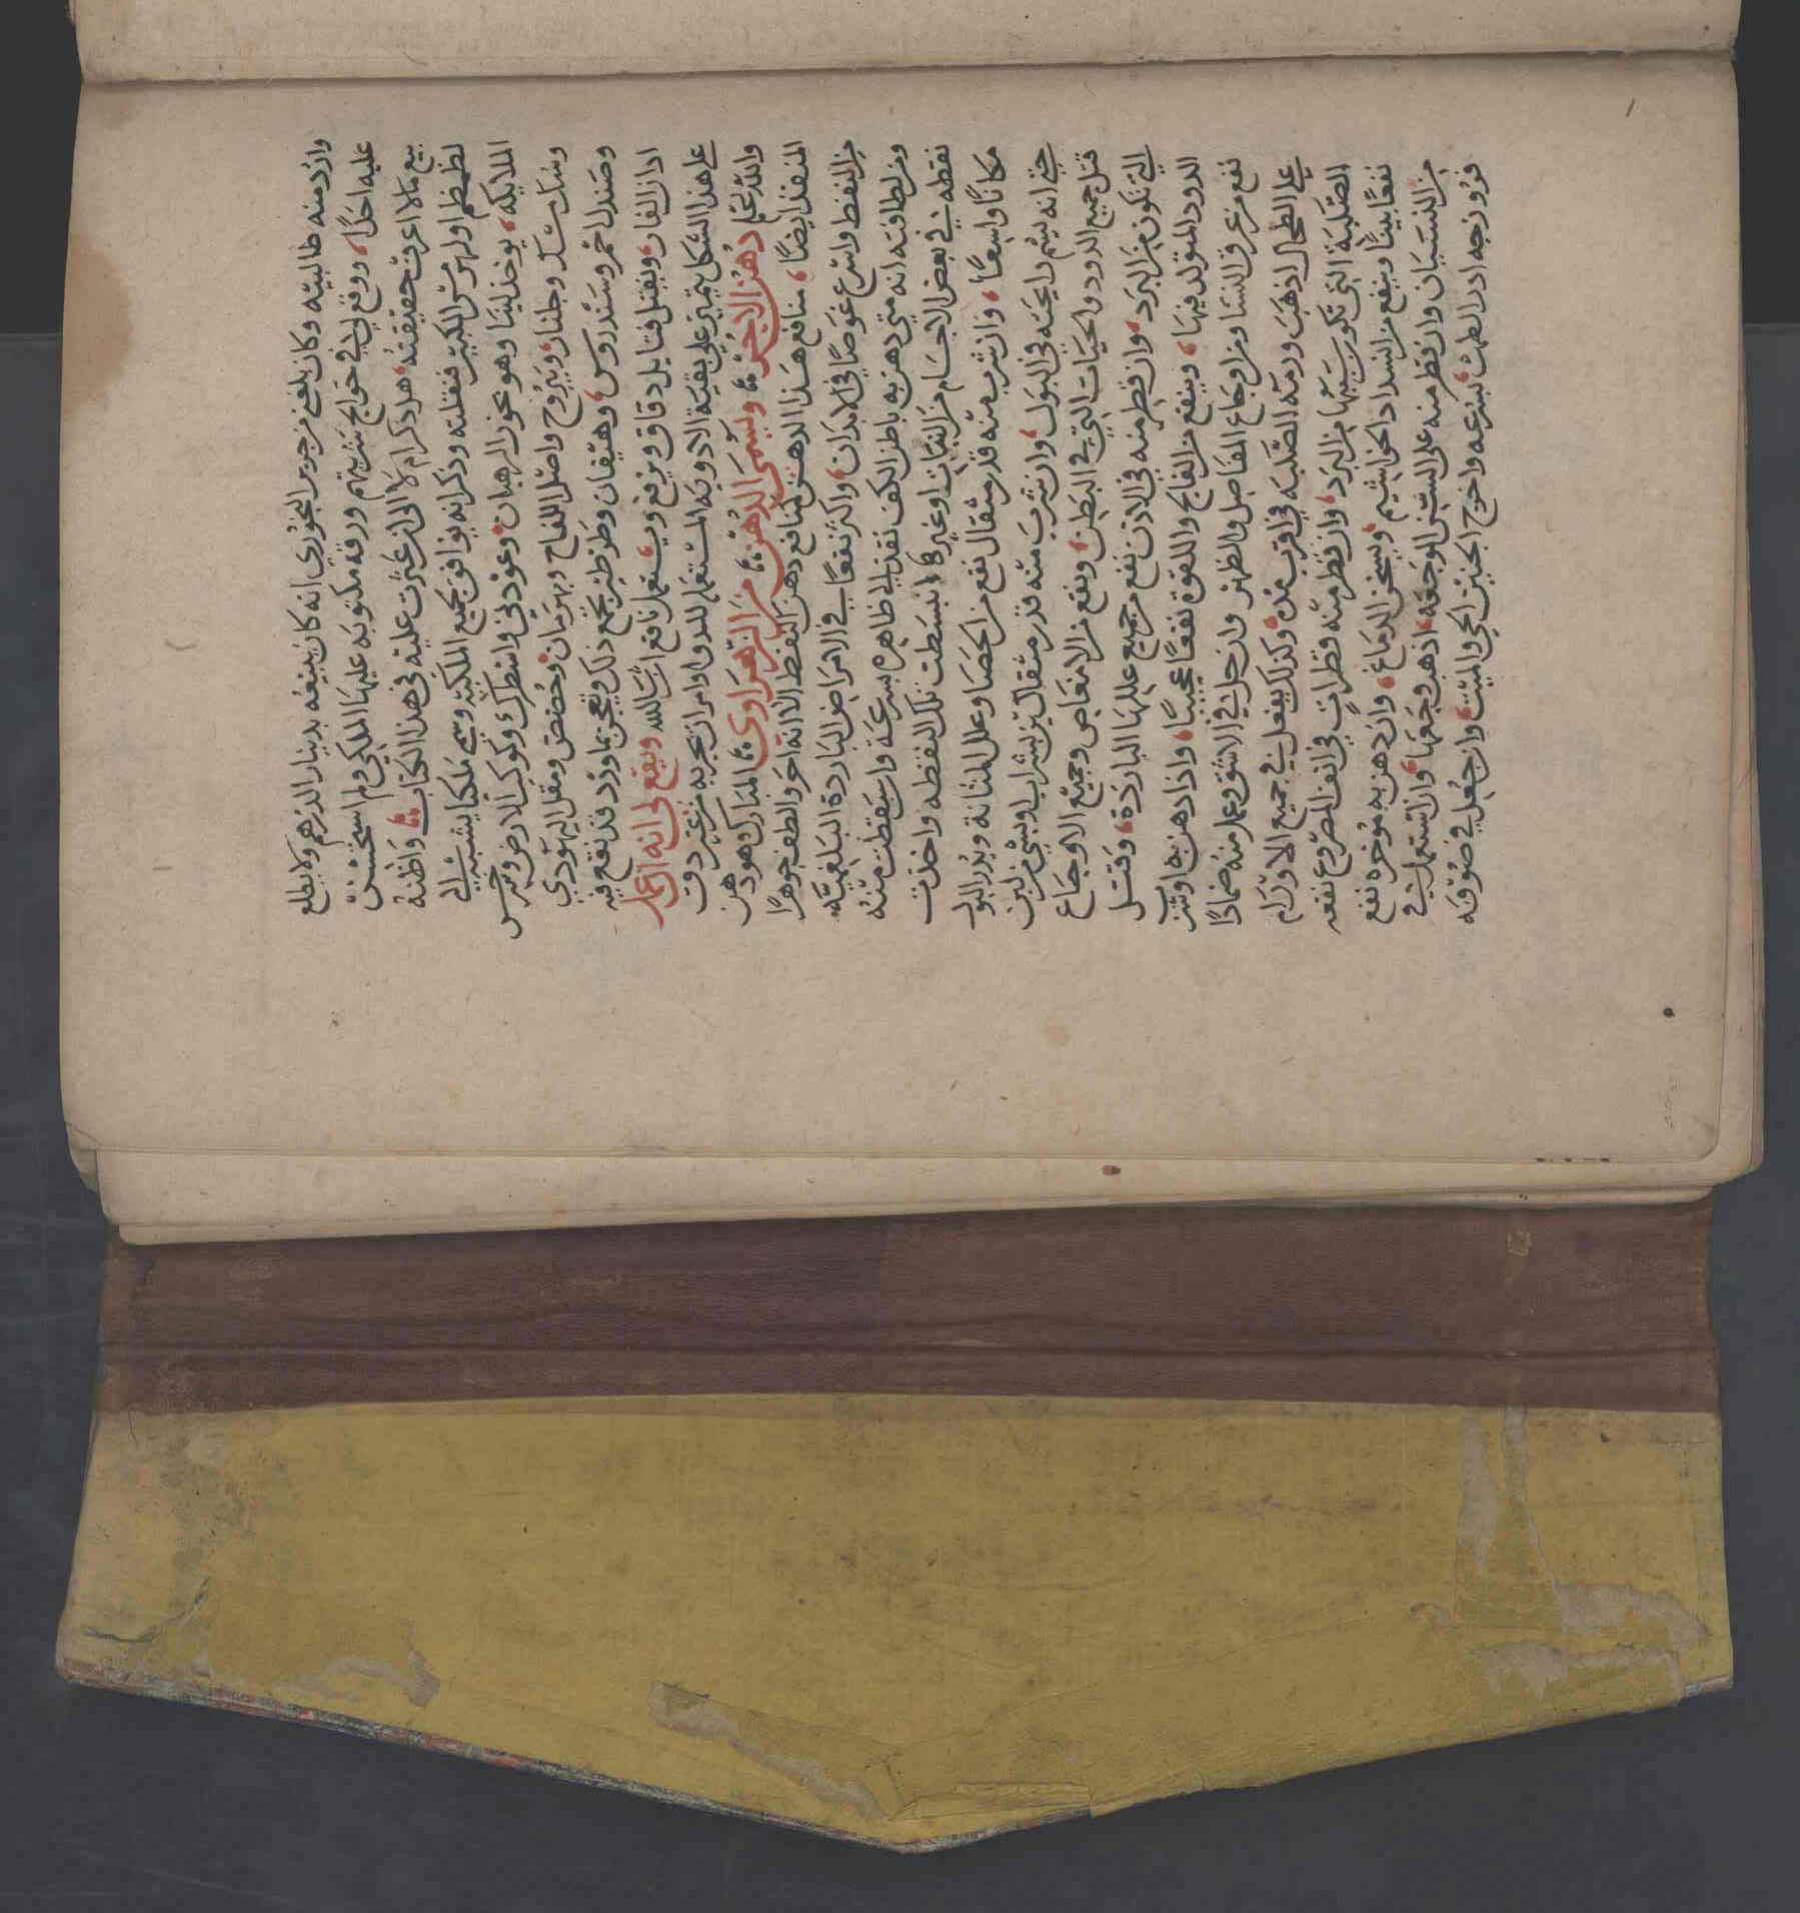 وازد منه طالبيه وكان بلغني من جرير الجوزي انه كان يبيعه بدينار الدرهم ولا يطلع
عليه احدًا، ووقع لي في حوايج شريتهم ورقه مكتوبه عليها الملكي ولم استحسن
بيع مالا اعرف حقيقته، هرد كرام لا الى ان عثرت عليه في هذا الكتاب واظنه
لظهظم اولهرمس الكبير فنقلته وذكر انه يوافق جميع الملكيه وسمي ملكيا يشبه الى
الملايكه، يوخذ لبنا وهو بخور الرهبان، وعود ني واسطرك وكوكب الارض ومر حس
وسك مسك وجلنار ويبروح واصل اللفاح وبهرمان، وحضض ومقل اليهودي
وصندل احمر وسندروس، وهيفان وظفر طيز يجمع ذلك ويعجن بماورد قد نقع فيه
اذان الفار، ويفتل فتايل دقاق ويرفع ويستعمل نافع ان شا الله ويقع لي انه ان عمل
على هذا الشكل يتميز على بقية الادويه المستعمله للدوا وامر ان يجر به من غير دق
والله اعلم دهن الاجر ويسمى الدهن المبارك من الزهراوي هو دهن
المنفذ ايضا، منافع هذا الدهن كمنافع دهن النفط الا انه احر والطف جوهرا
من النفط واسرع غوصا في الابدان، واكثر نفعا في الامراض البارده البلغميه
ومن لطافته انه متى دهن به باطن الكف نفذ الى ظاهره بسرعة وان سقطت منه
نقطه في بعض الاجسام من الثياب او غيرها انبسطت تلك النقطه واخذت
مكانا واسعا، وان شرب منه قدر مثقال نفع من الحصا وعلل المثانة ويدر البول
حتى انه يشم رايحته في البول، وان شرب منه قدر مثقالين بشراب او بشي من لبن
قتل جميع الدود والحيات التي في البطن، ونفع من الامغاص وجميع الاوجاع
التي تكون من البرد، وان قطر منه في الاذن نفع من جميع عللها الباردة، وقتل
الدود المتولد فيها، وينفع من الفالج واللقوة نفعا عجيبا، واذا دهن به او شرب
نفع من عرق النسا ومن اوجاع المفاصل والظهر وان حل في الاشق وعمل منه ضمادا
على الطحال اذهب ورمه الصلبه في اقرب مده، وكذلك يفعل في جميع الاورام
الصلبة التي تكون سببها من البرد، وان قطر منه قطرات في انف المصروع نفعه
نفعا بينا وينفع من انسداد الخواشيم، ويسخن الدماغ، وان دهن به موخره نفع
من النسيان وان قطر منه على السن الوجعه، اذهب وجعها، وان استعمل في
فرزجه ادر الطمث، بسرعه واخرج الجنين الحي والميت، وان جعل في صوفه